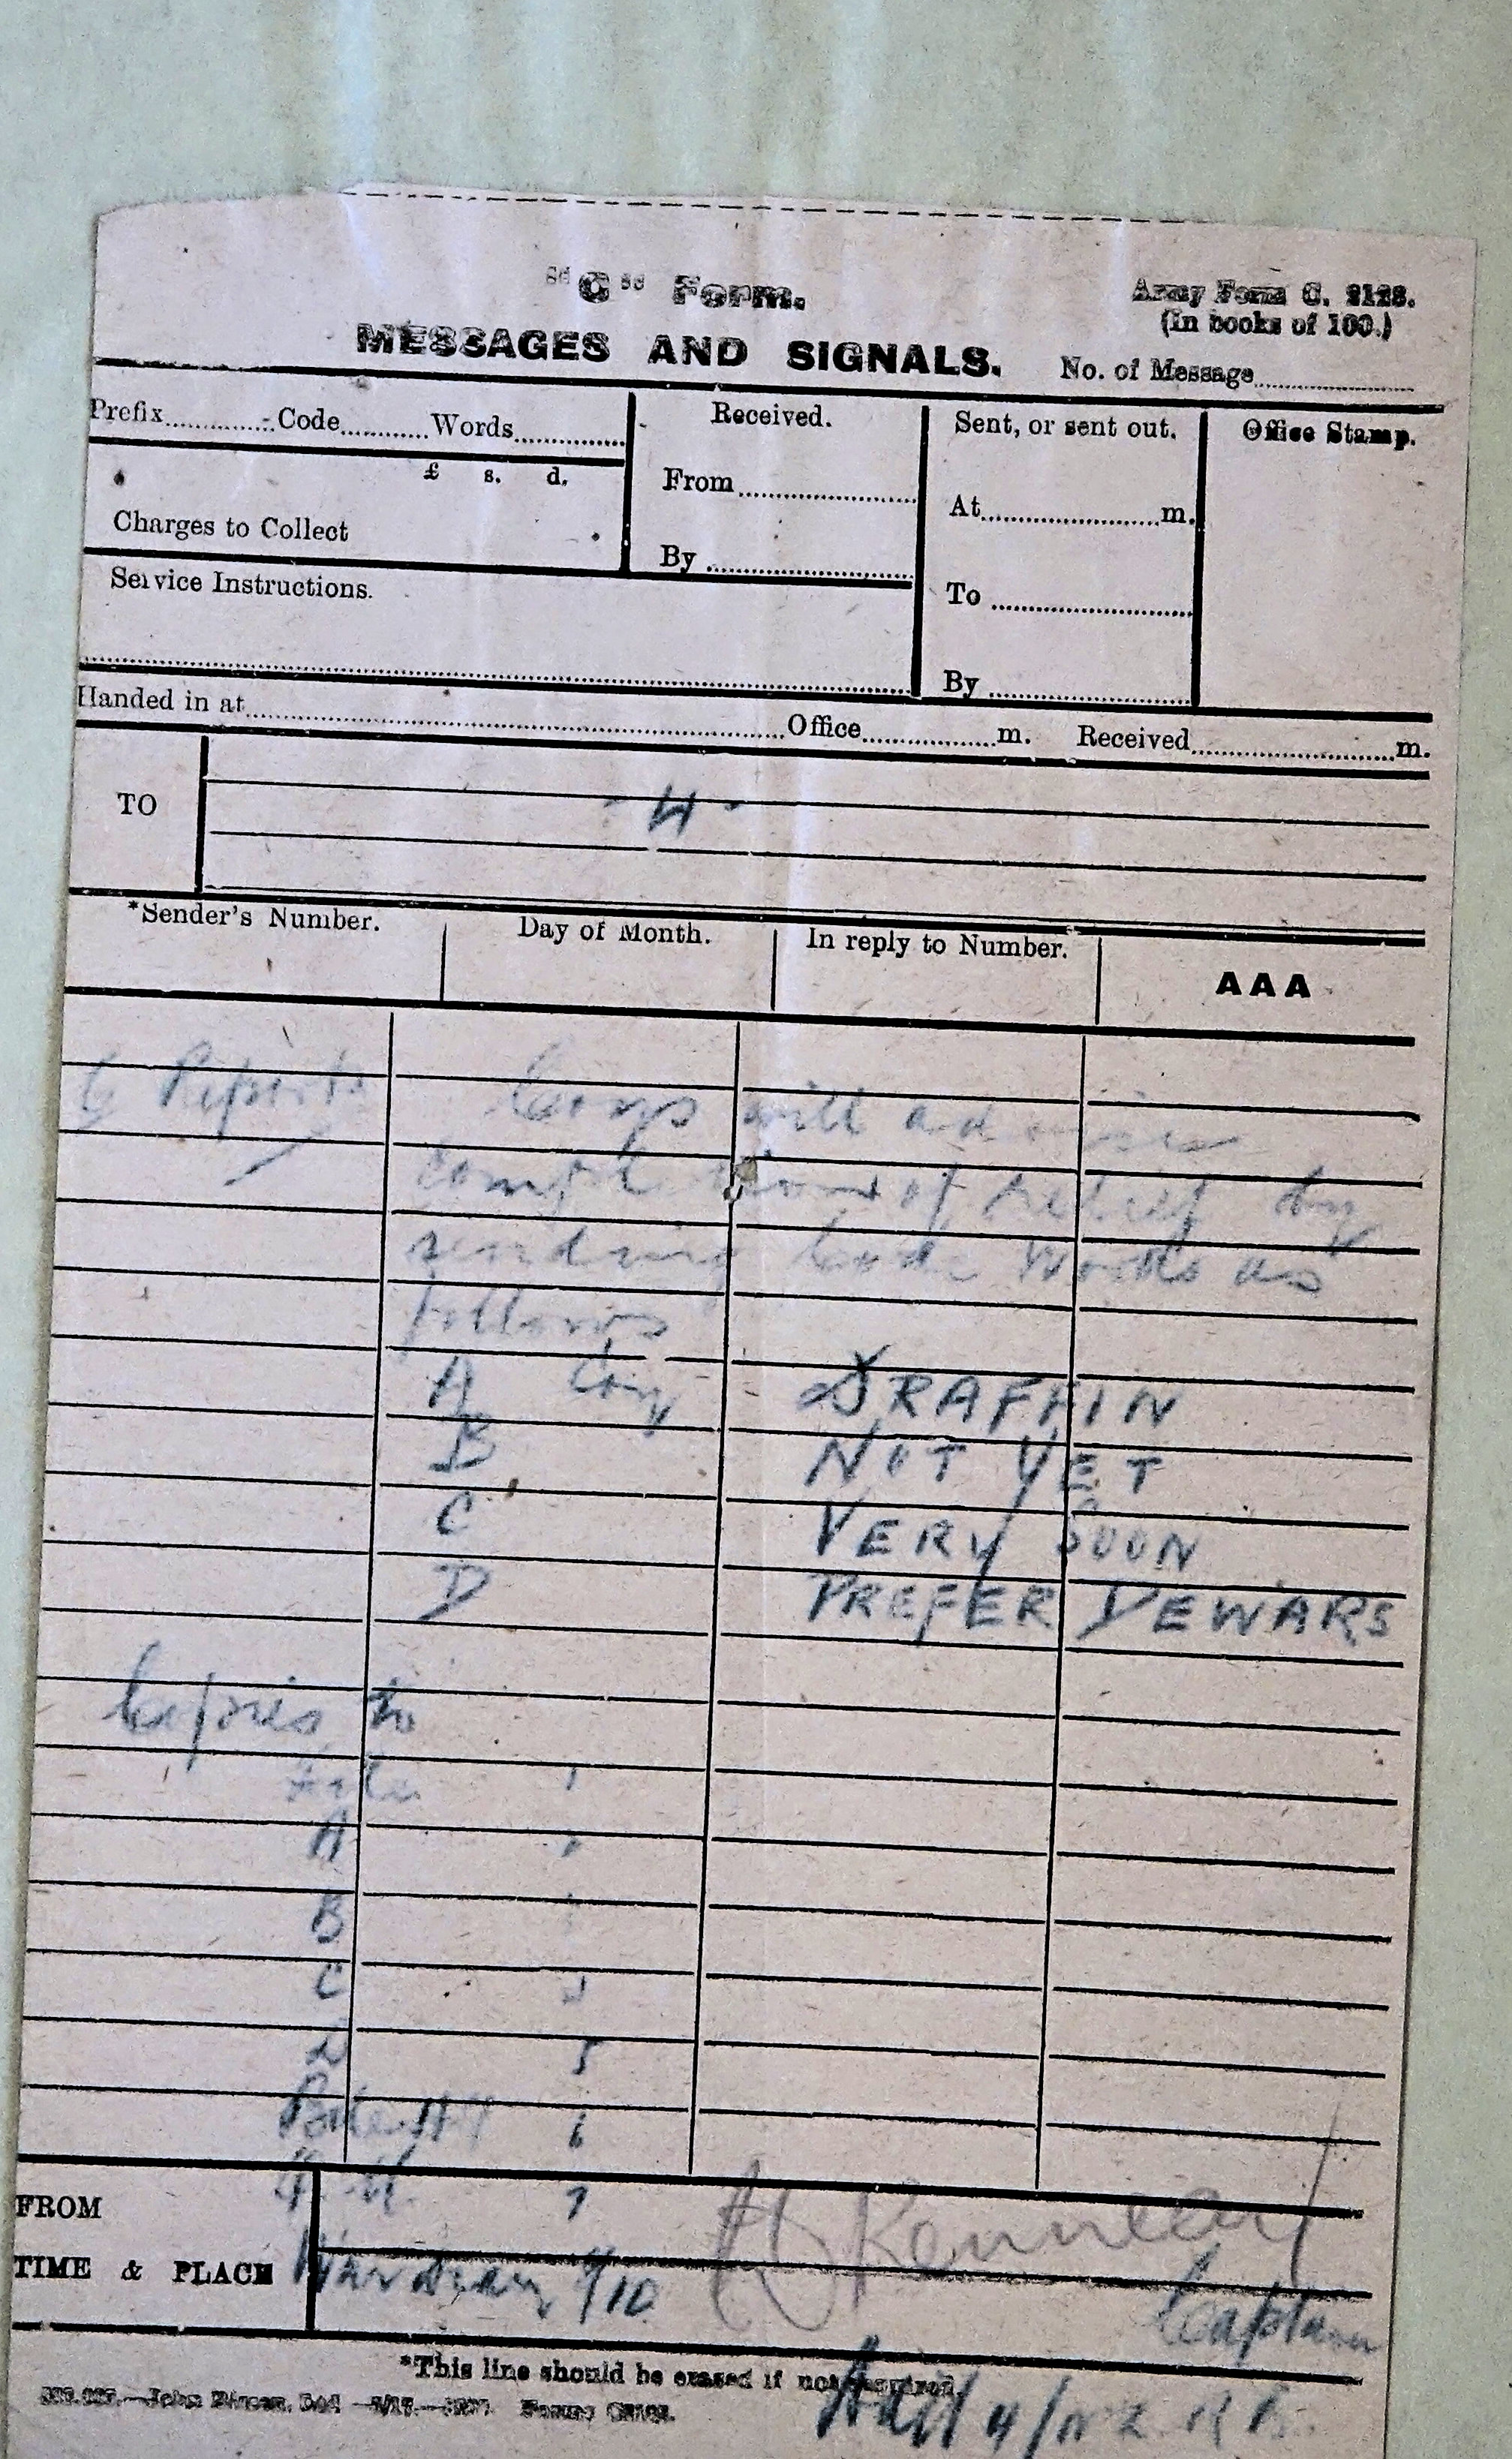 "C" Form.
Army Form C. 2123.
(In books of 100.)
MESSAGES AND SIGNALS.
No. of Message
Prefix Code Words
Received.
Sent, or sent out.
Office Stamp.
£ s. d.
Charges to Collect
From
By
At m.
To
By
Service Instructions.
Handed in at Office m. Received m.
TO
- 4 -
*Sender's Number. Day of Month. In reply to Number. AAA
6 Reports Coys will advise
completion of relief by
sending Code Words as
follows
A Coy DRAFFIN
B NOT YET
C VERY SOON
D PREFER DEWARS
Copies to
File 1
A
B
C
D 5
6
7
FROM
Kennedy
TIME & PLACE /10 Captain
*This line should be erased if not required.
Adjt 4/N Z R B.